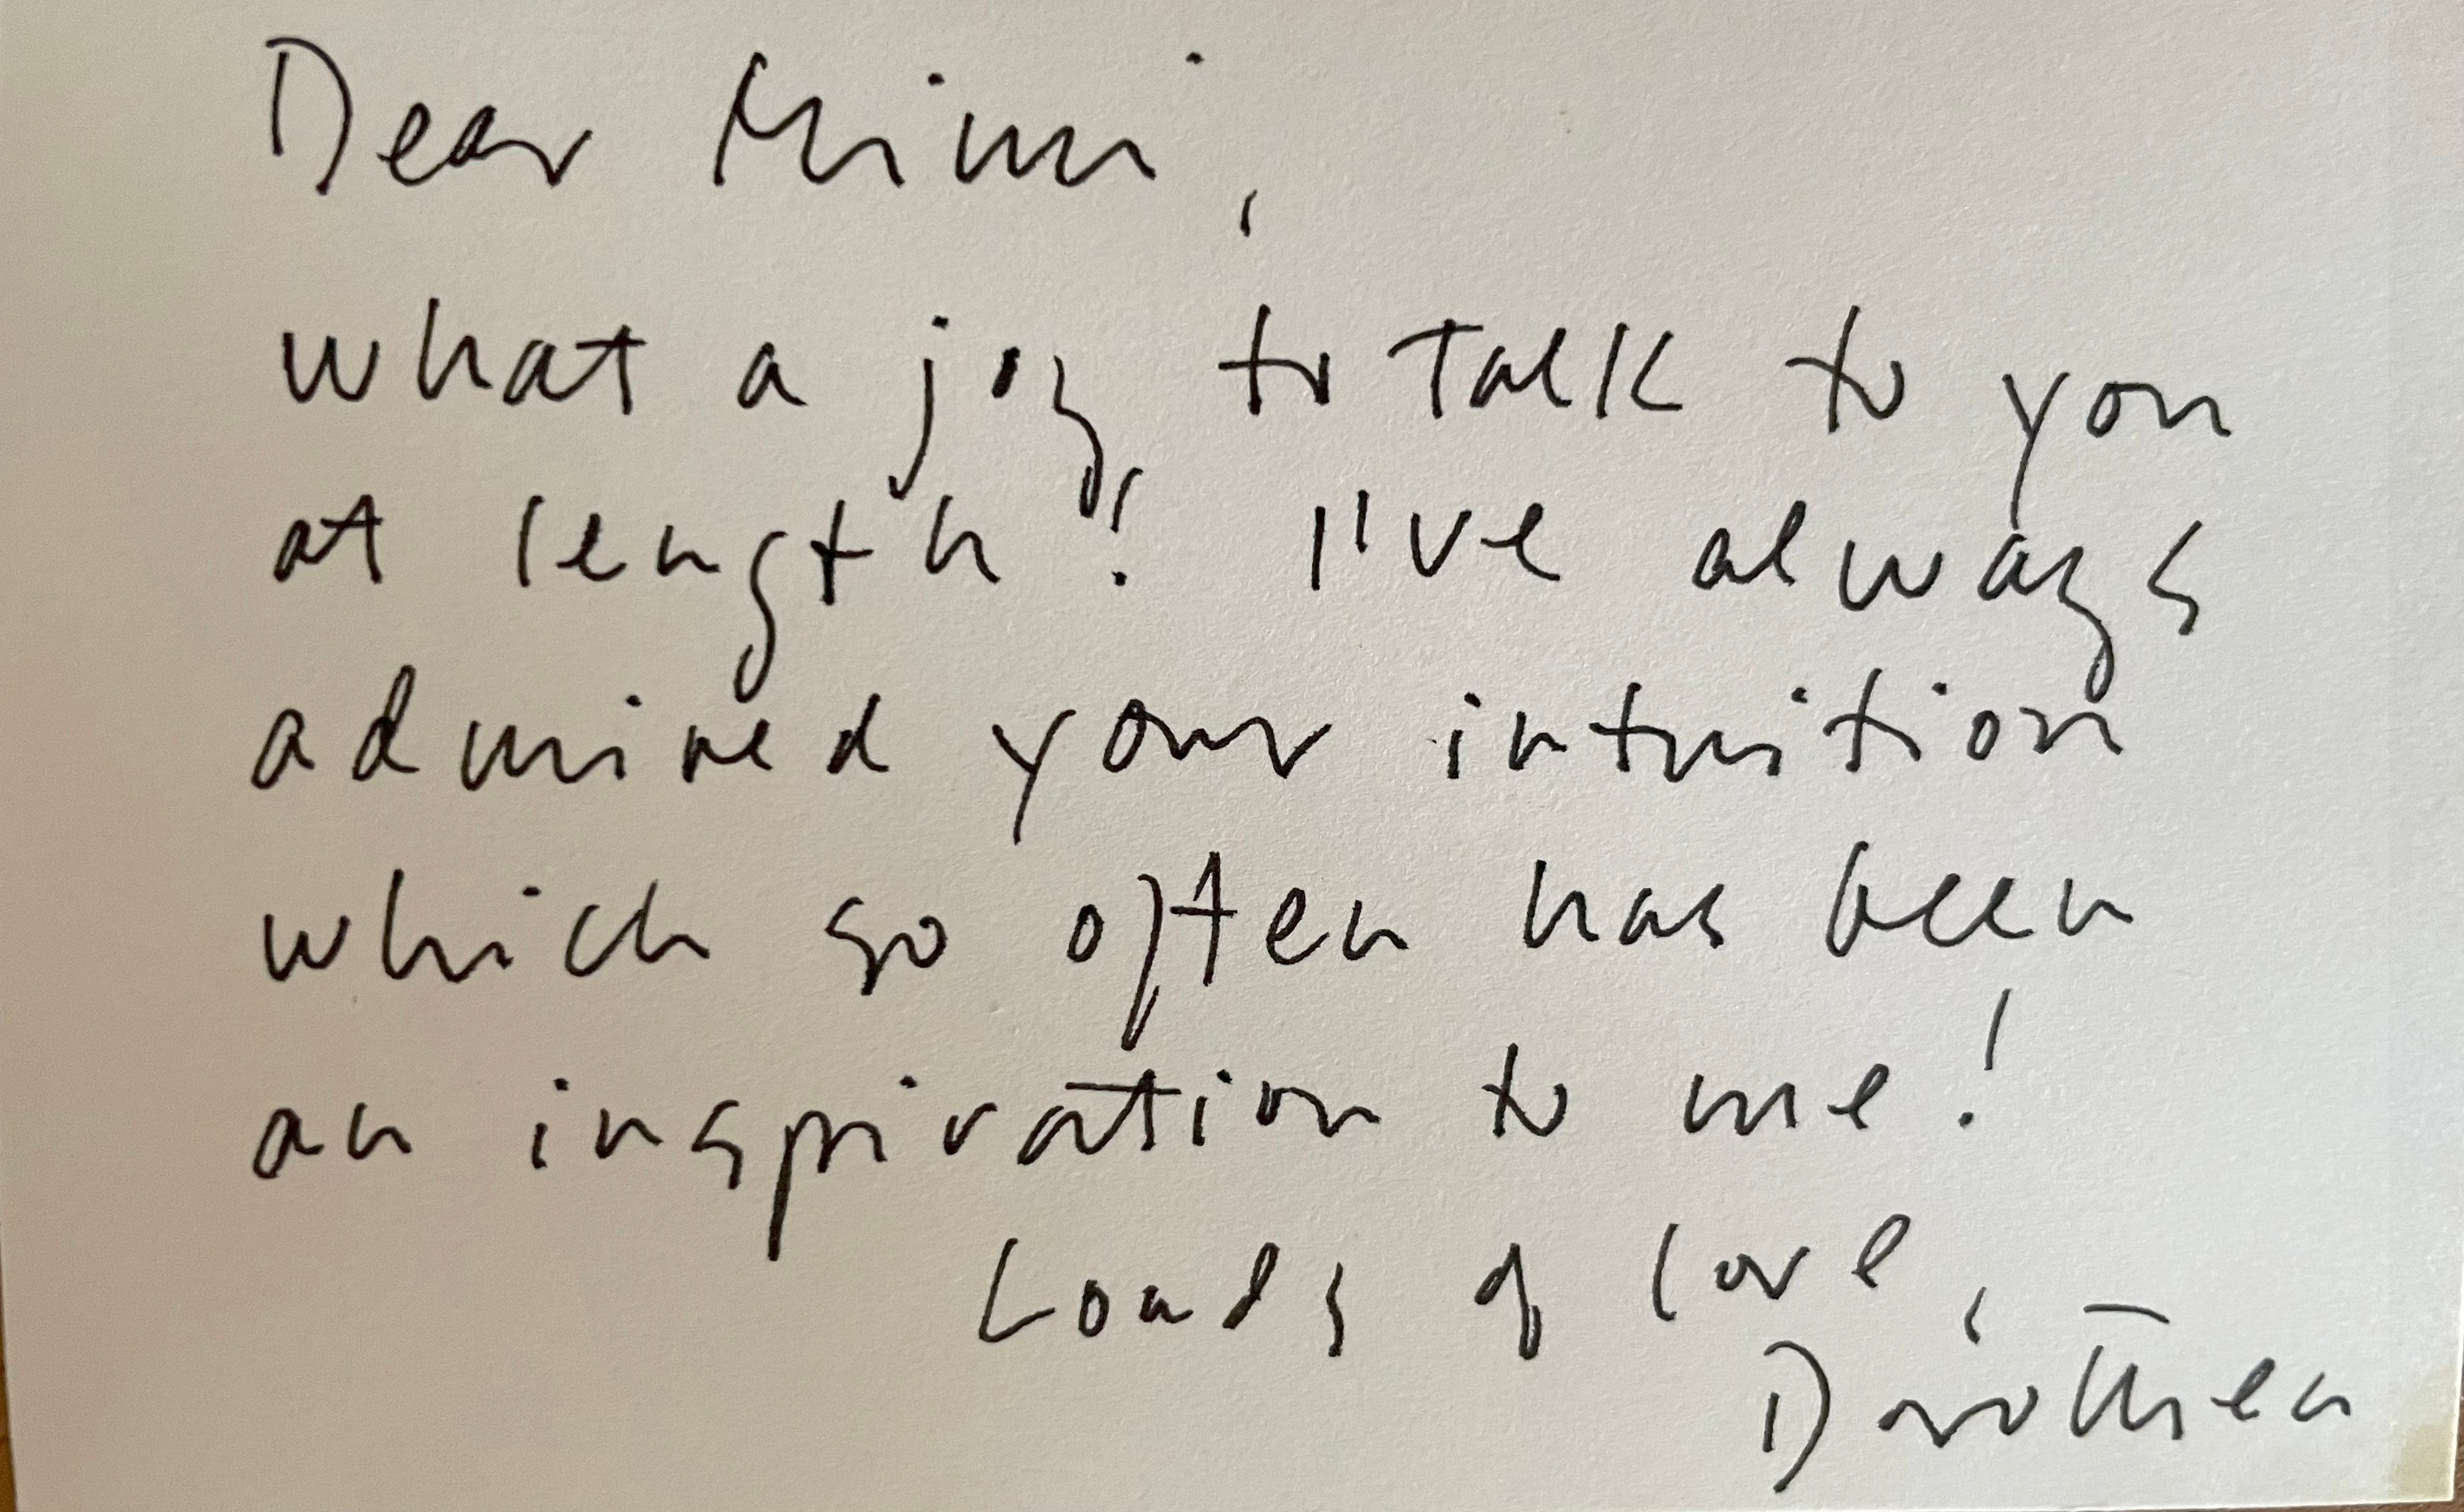 Dear Mimi,
what a joy to talk to you
at length! I've always
admired your intuition
which so often has been
an inspiration to me!
Loads of love,
Dorothea